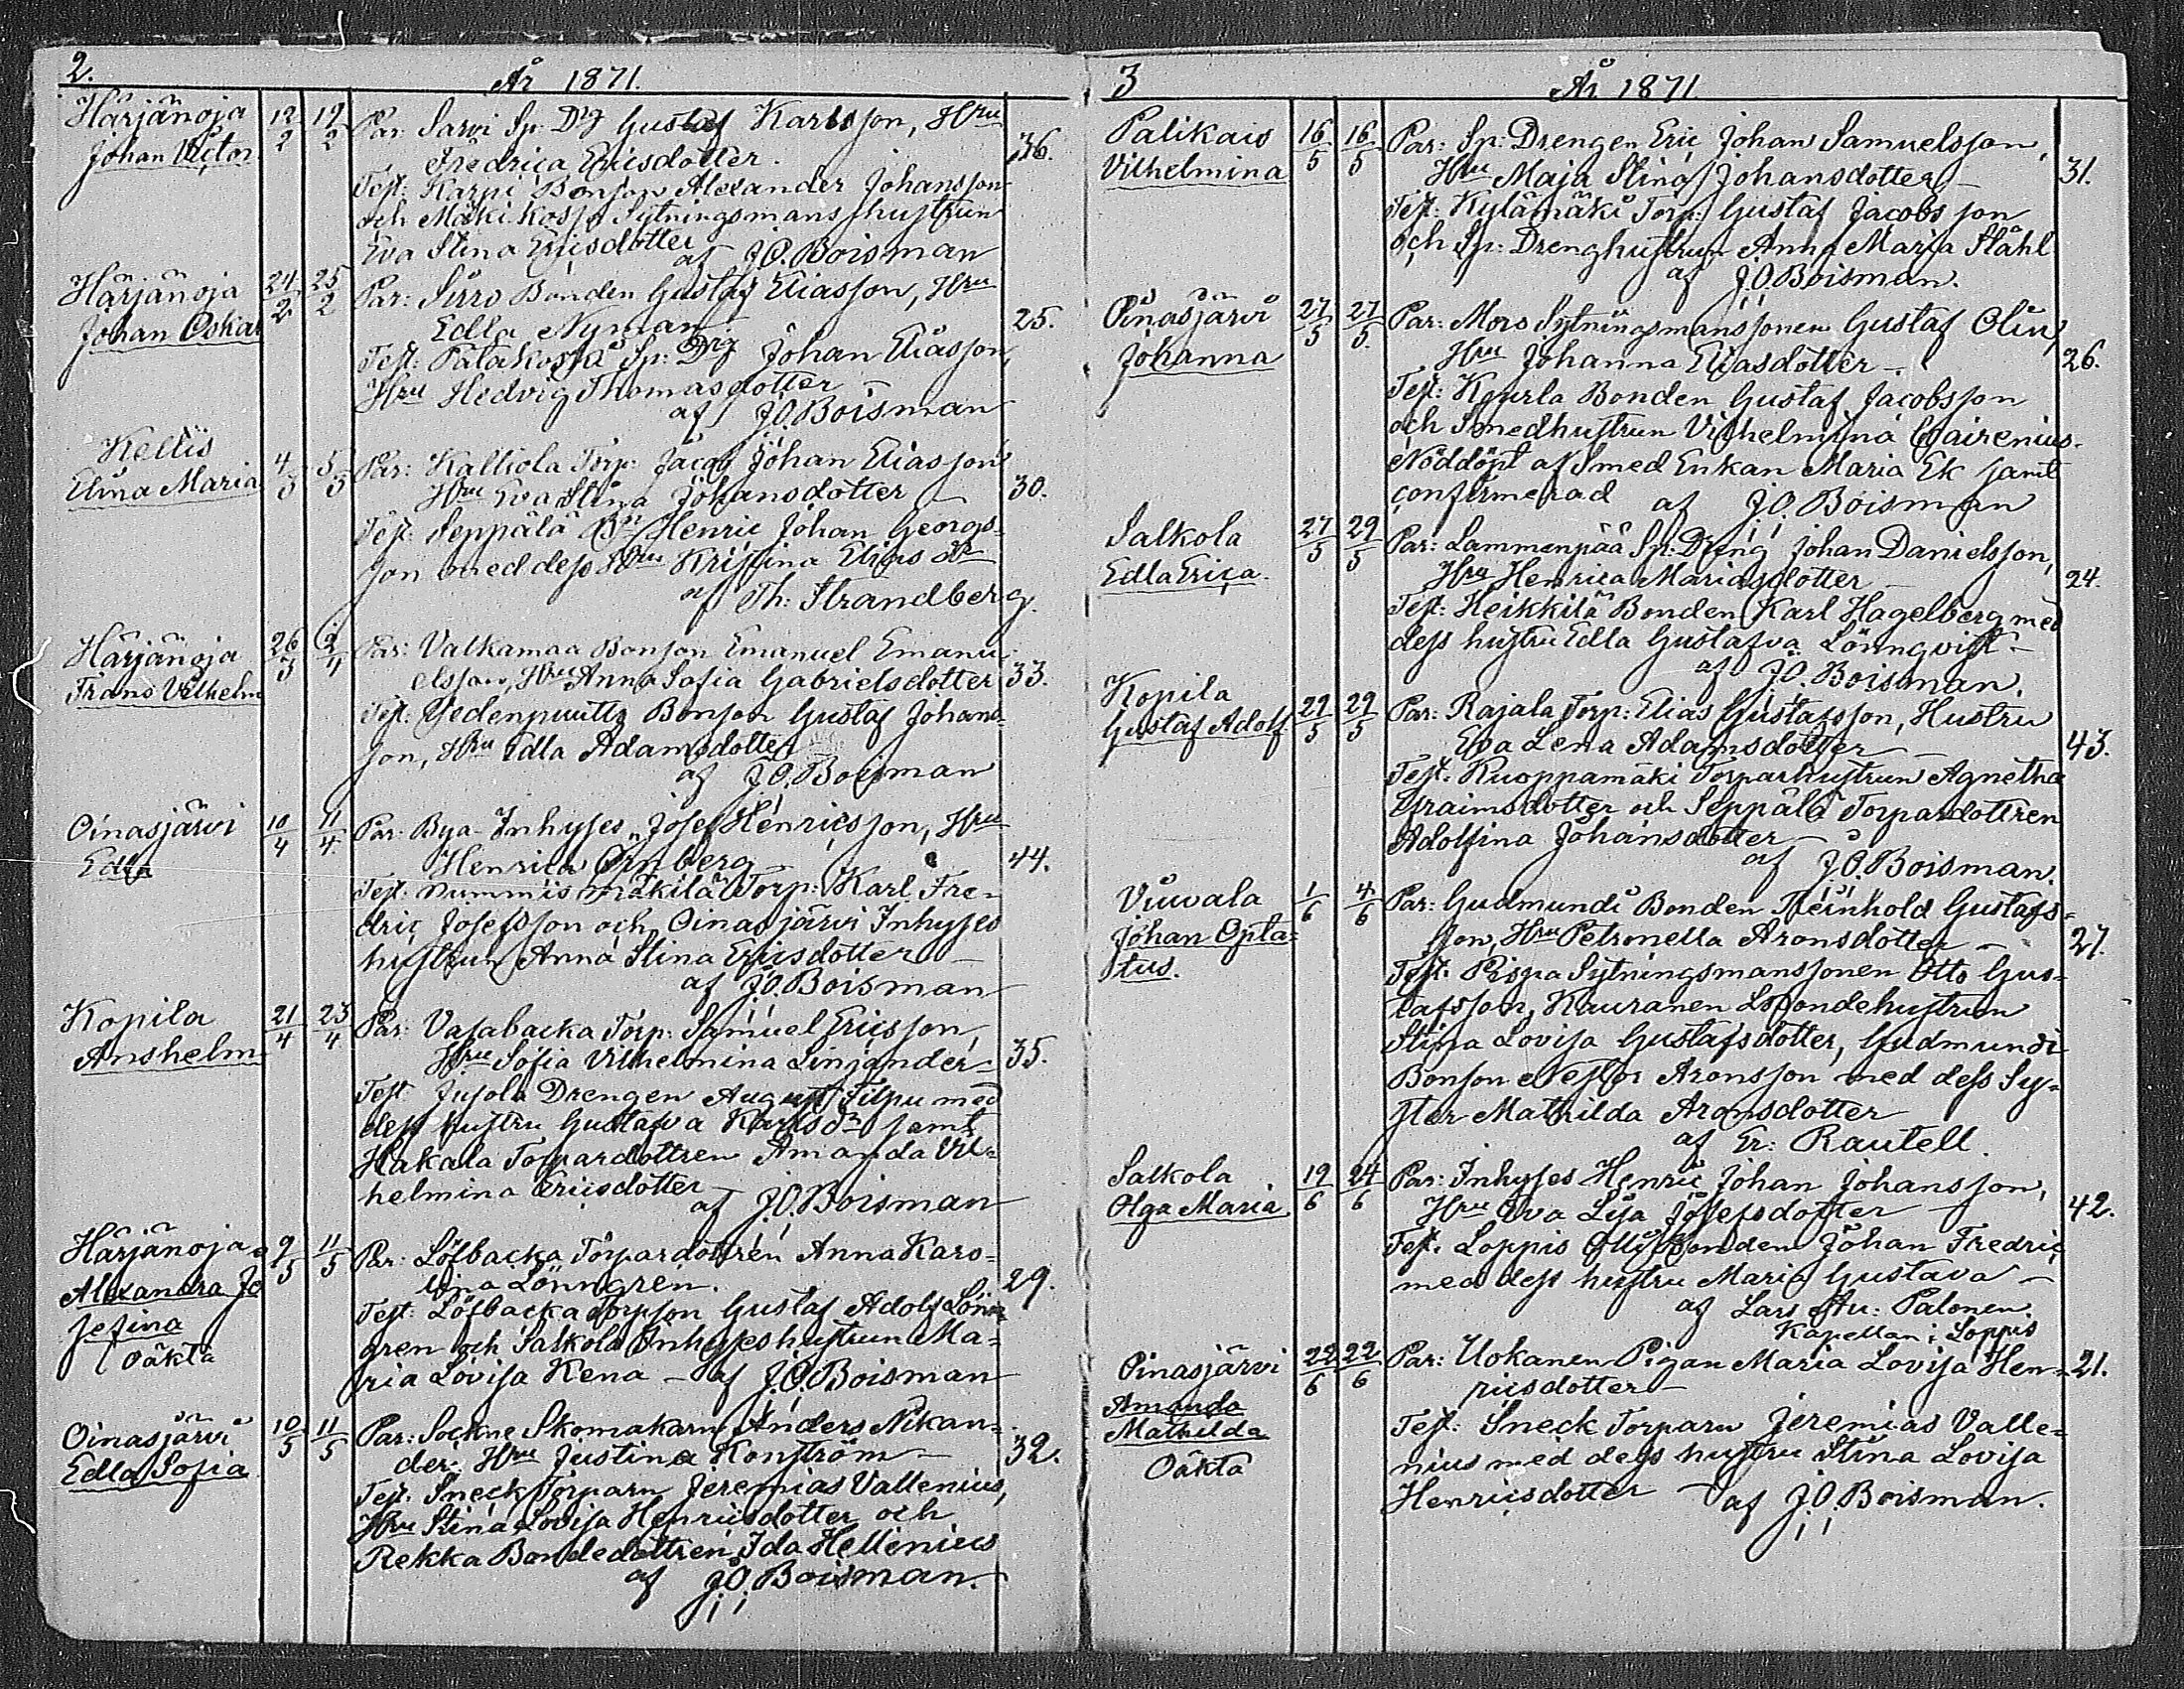 2.
År 1871.
Härjänoja 12/2 12/2 Par: Sarvi Sp: Drg Gustaf Karlsson, Hru
Johan Victor Fredrica Ericsdotter. 36.
Test: Karpi Bonson Alexander Johansson
och Mäki Sytningsmanshustrun
Eva Stina Ericsdotter af J.O. Boisman
Härjänoja 24/2 25/2 Par: Sirro Bonden Gustaf Eliasson, Hru
Johan Oskar Edla Nyman 25.
Test: Palakoski Sp: Drg Johan Eliasson,
Hru Hedvig Thomasdotter –
af J.O. Boisman
Kellis
Elina Maria 4/3 5/3 Par: Kalliola Torp: Jacob Johan Eliasson
Hru Eva Stina Johansdotter – 30.
Test: Seppälä Bn Henric Johan Georgs-
son med dess Hru Kristina Elias dr
af Th: Strandberg.
Härjänoja 26/3 2/4 Par: Valkamaa Bonson Emanuel Emanu-
Frans Vilhelm elsson, Hru Anna Sofia Gabrielsdotter 33.
Test: Yedenpuutty Bonson Gustaf Johans-
son, Hru Edla Adamsdotter
af J.O. Boisman
Oinasjärvi 10/4 11/4 Par: Bya-Inhyses Josef Henricsson, Hru
Edla Henrica Örnberg – 44.
Test: Nummis mäkilä Torp: Karl Fre-
dric Josefsson och Oinasjärvi Inhyses
hustrun Anna Stina Ericsdotter –
af J.O. Boisman
Kopila 21/4 23/4 Par: Vasabacka Torp: Samuel Ericsson,
Anshelm Hru Sofia Vilhelmina Linjander – 35.
Test: Jusola Drengen August Filpu med
dess hustru Gustafva Karlsdr samt
Hakala Torpardottren Amanda Vil-
helmina Ericsdotter –
af J.O. Boisman
Härjänoja 9/5 11/5 Par: Löfbacka Torpardottren Anna Karo-
Alexandra Jo lina Lönngren. 29.
sefina Test: Löfbacka Torpson Gustaf Adolf Lönn-
Oäkta gren och Salkola Inhyseshustrun Ma-
ria Lovisa Kena – af J.O. Boisman
Oinasjärvi 10/5 11/5 Par: Sockne Skomakarn Anders Nikan-
Edla Sofia der. Hru Justina Konström – 32.
Test: Sneck Torparn Jeremias Vallenius,
Hru Stina Lovisa Henricsdotter och
Rekka Bondedottren Ida Hellenius
af J.O. Boisman.
3
År 1871
Palikais 16/5 16/5 Par: Sp: Drengen Eric Johan Samuelsson,
Vilhelmina Hru Maja Stina Johansdotter – 31.
Test: Kylämäki Torp: Gustaf Jacobsson
och Sp: Drenghustrun Anna Maria Ståhl
af J.O. Boisman.
Oinasjärvi 27/5 27/5 Par: Mors Sytningsmanssonen Gustaf Olin,
Johanna Hru Johanna Eliasdotter –. 26.
Test: Kourla Bonden Gustaf Jacobsson
och Smedhustrun Vilhelmina Cairenius.
Nöddöpt af Smed Enkan Maria Ek samt
confirmerad af J.O. Boisman
Salkola 27/5 29/5 Par: Lammenpää Sp: Dreng Johan Danielsson,
Edla Erica. Hru Henrica Mariasdotter – 24.
Test: Heikkilä Bonden Karl Hagelberg med
dess hustru Edla Gustafva Lönnqvist –
af J.O. Boisman.
Kopila 29/5 29/5 Par: Rajala Torp: Elias Gustafsson, Hustru
Gustaf Adolf. Eva Lena Adamsdotter – 43.
Test: Kuoppamäki Torparhustrun Agnetha
Efraimsdotter och Seppälä Torpardottren
Adolfina Johansdotter –
af J.O. Boisman.
Viuvala 1/6 4/6 Par: Gudmundi Bonden Reinhold Gustafs-
Johan Opta- son, Hru Petronella Aronsdotter – 27.
tus. Test: Rispa Sytningsmanssonen Otto Gus-
tafsson, Kauranen Lsbondehustrun
Stina Lovisa Gustafsdotter, Gudmundi
Bonson Nestor Aronsson med dess Sy-
ster Mathilda Aronsdotter
af Er: Rautell.
Salkola 19/6 24/6 Par: Inhyses Henric Johan Johansson,
Olga Maria Hru Eva Lisa Josefsdotter – 42.
Test: Loppis Bonden Johan Fredric
med dess hustru Maria Gustava –
af Lars Palonen.
Kapellan i Loppis
Oinasjärvi 22/6 22/6 Par: Uokanen Pigan Maria Lovisa Hen- 21.
Amanda ricsdotter –
Mathilda Test: Sneck Torparn Jeremias Valle-
Oäkta nius med dess hustru Stina Lovisa
Henricsdotter – af J.O. Boisman.